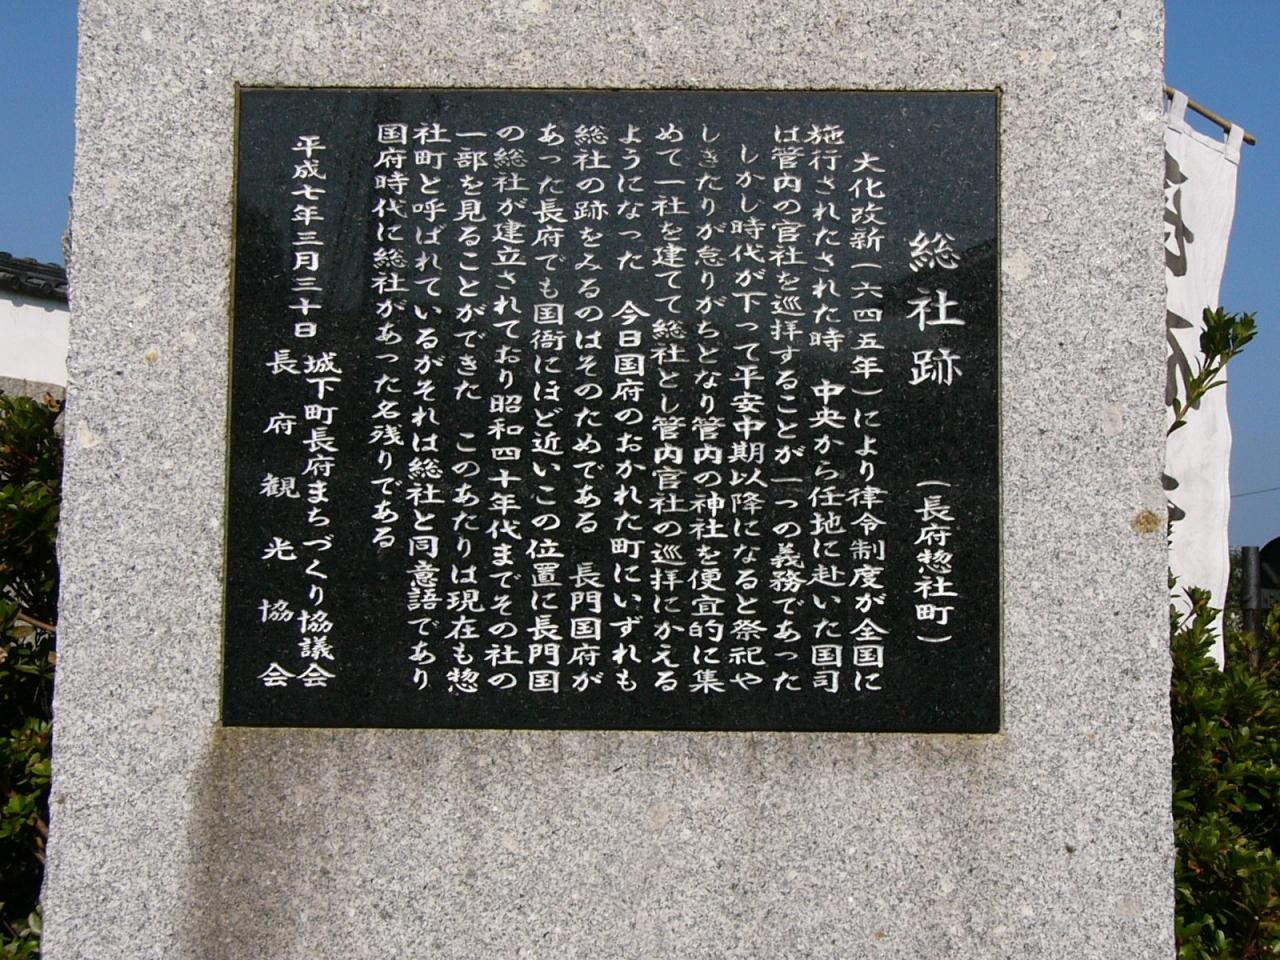 総社跡　（長府惣社町）
大化改新（一六四五年）により律令制度が全国に
施行されたされた時　中央から任地に赴いた国司
は管内の官社を巡拝することが一つの義務であった
しかし時代が下って平安中期以降になると祭祀や
しきたりが怠りがちとなり管内の神社を便宜的に集
めて一社を建てて総社とし管内官社の巡拝にかえる
ようになった　今日国府のおかれた町にいずれも
総社の跡をみるのはそのためである　長門国府が
あった長府でも国衙にほど近いこの位置に長門国
の総社が建立されており昭和四十年代までその社の
一部を見ることができた　このあたりは現在も惣
社町と呼ばれているがそれは総社と同意語であり
国府時代に総社があった名残りである
平成七年三月三十日
城下町長府まちづくり協議会
長府観光協会